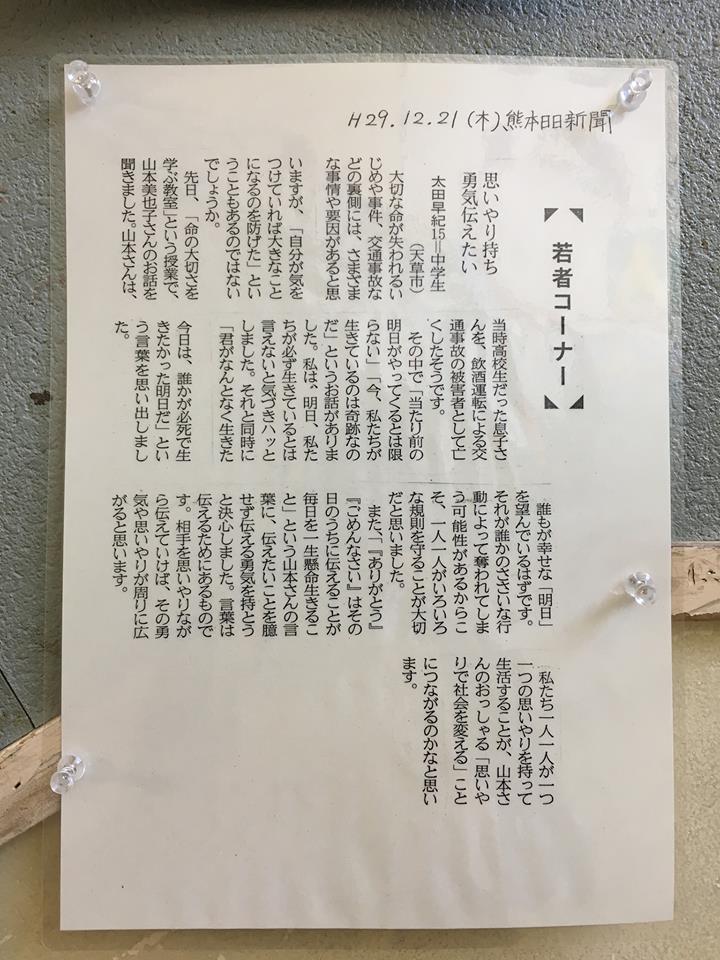 H29.12.21(木)、熊本日日新聞
【若者コーナー】
思いやり持ち
勇気伝えたい
太田早紀15=中学生
(天草市)
大切な命が失われるい
じめや事件、交通事故な
どの裏側には、さまざま
な事情や要因があると思
いますが、「自分が気を
つけていれば大きなこと
になるのを防げた」とい
うこともあるのではない
でしょうか。
先日、「命の大切さを
学ぶ教室」という授業で、
山本美也子さんのお話を
聞きました。山本さんは、
当時高校生だった息子さ
んを、飲酒運転による交
通事故の被害者として亡
くしたそうです。
その中で「当たり前の
明日がやってくるとは限
らない」「今、私たちが
生きているのは奇跡なの
だ」というお話がありま
した。私は、明日、私た
ちが必ず生きているとは
言えないと気づきハッと
しました。それと同時に
「君がなんとなく生きた
今日は、誰かが必死で生
きたかった明日だ」とい
う言葉を思い出しまし
た。
誰もが幸せな「明日」
を望んでいるはずです。
それが誰かのささいな行
動によって奪われてしま
う可能性があるからこ
そ、一人一人がいろいろ
な規則を守ることが大切
だと思いました。
また、「『ありがとう』
『ごめんなさい』はその
日のうちに伝えることが
毎日を一生懸命生きるこ
と」という山本さんの言
葉に、伝えたいことを臆
せず伝える勇気を持とう
と決心しました。言葉は
伝えるためにあるもので
す。相手を思いやりなが
ら伝えていけば、その勇
気や思いやりが周りに広
がると思います。
私たち一人一人が一つ
一つの思いやりを持って
生活することが、山本さ
んのおっしゃる「思いや
りで社会を変える」こと
につながるのかなと思い
ます。